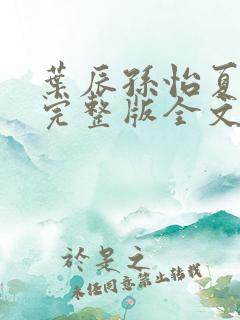 葉辰孫怡夏
完整版全文
於是之
未经同意禁止转载